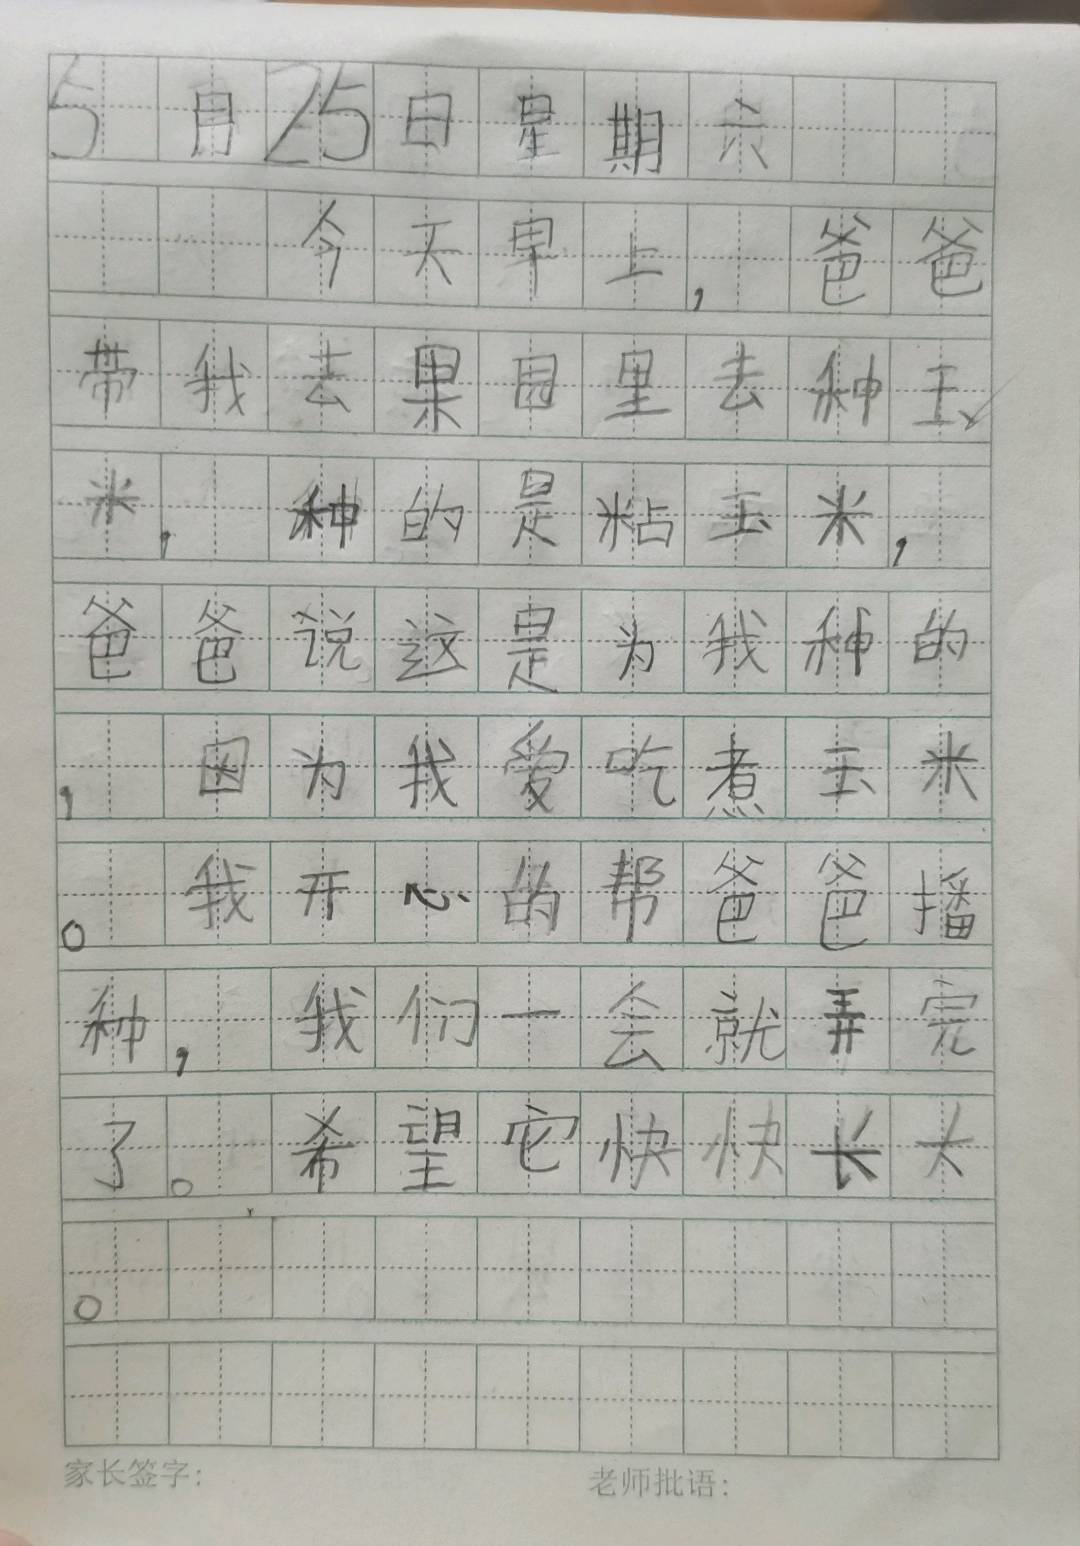 5月25日星期六
今天早上，爸爸
带我去果园里去种玉
米，种的是粘玉米，
爸爸说这是为我种的
，因为我爱吃煮玉米
。我开心的帮爸爸播
种，我们一会就弄完
了。希望它快快长大
。
家长签字：
老师批语：